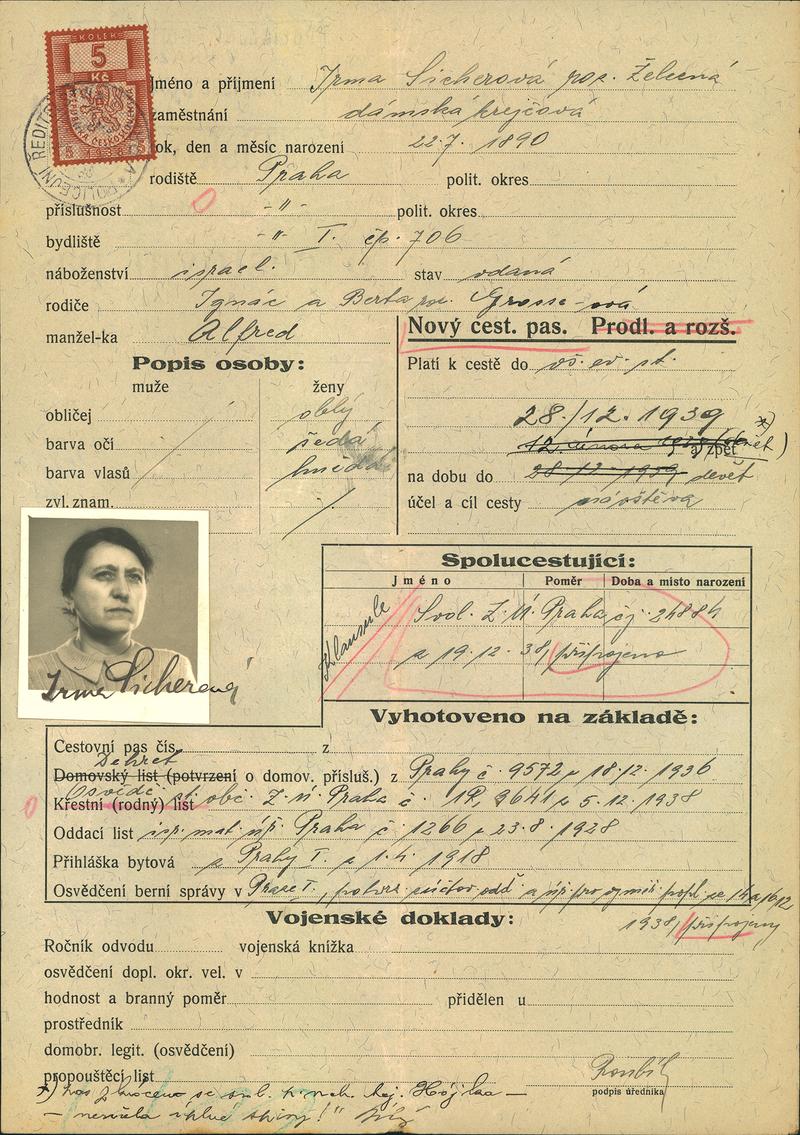 KOLEK
5
Kč
POLICEJNÍ ŘEDIT
Jméno a příjmení Irma Sicherová roz. Želecná
zaměstnání dámská krejčová
ok, den a měsíc narození 22.7. 1890
rodiště Praha polit. okres
příslušnost -"- polit. okres
bydliště -"- I. čp. 706
náboženství israel. stav vdaná
rodiče Ignác a Berta roz. Grosse-ová
manžel-ka Alfred
Nový cest. pas. Prodl. a rozš.
Popis osoby:
muže ženy
obličej oblý
barva očí šedá
barva vlasů hnědá
zvl. znam.
Platí k cestě do vš. ev. st.
28./12. 1939 *)
12. února a zpět )
na dobu do 28/12 1939
účel a cíl cesty návštěva
Spolucestující:
Jméno Poměr Doba a místo narození
Klausule
Svol. Z. Ú. Praha čj. 24884
z 19.12.38, připojeno
Irma Sicherová
Vyhotoveno na základě:
Cestovní pas čís. z
Dekret
Domovský list (potvrzení o domov. přísluš.) z Prahy č. 9572 z 18.12. 1936
Osvědč. st. obč. Z. Ú. Praha č. 9641 z 5.12.1938
Křestní (rodný) list
Oddací list isr. mat. úř. Praha č. 1266 z 23.8.1928
Přihláška bytová z Prahy I. z 1.4. 1918
Osvědčení berní správy v Praze I., potvrz. účtov. odd. a úř. pro vyměř. popl. ze 14 a 16/12
1938, připojeny
Vojenské doklady:
Ročník odvodu vojenská knížka
osvědčení dopl. okr. vel. v
hodnost a branný poměr přidělen u
prostředník
domobr. legit. (osvědčení)
propouštěcí list
podpis úředníka
*)